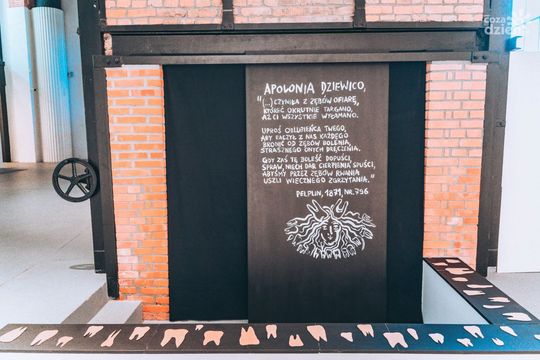 coza
dzień
APOLONIA DZIEWICO,
"(...) CZYNIŁA Z ZĘBÓW OFIARĘ,
KTÓREĆ OKRUTNIE TARGANO,
AŻ CI WSZYSTKIE WYŁAMANO.
UPROŚ OBLUBIEŃCA TWEGO,
ABY RACZYŁ Z NAS KAŻDEGO
BRONIĆ OD ZĘBÓW BOLENIA,
STRASZNEGO ONYCH DRĘCZENIA.
GDY ZAŚ TĘ BOLEŚĆ DOPUŚCI,
SPRAW, NIECH DAR CIERPIENIA SPUŚCI,
ABYŚMY PRZEZ ZĘBÓW RWANIA
USZLI WIECZNEGO ZGRZYTANIA."
PELPLIN, 1871, NR. 796